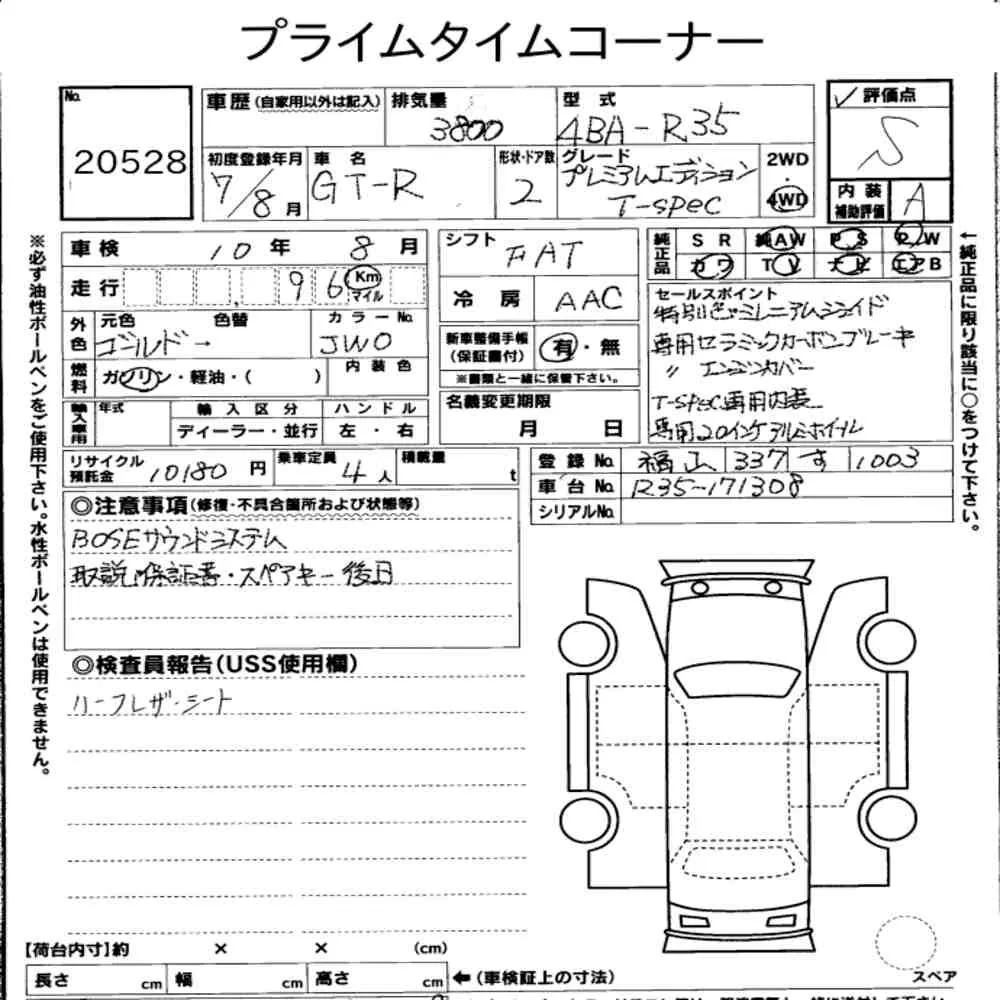 プライムタイムコーナー
No. 20528
車歴 (自家用以外は記入)
排気量 3800
型式 4BA-R35
評価点 S
初度登録年月 7/8月
車名 GT-R
形状・ドア数 2
グレード プレミアムエディション T-spec
2WD・4WD
内装補助評価 A
※必ず油性ボールペンをご使用下さい。水性ボールペンは使用できません。
車検 10年 8月
走行 96 Km マイル
外色 元色 ゴールド→ 色替
カラーNo. JWO
燃料 ガソリン・軽油・( )
内装色
輸入車用 年式
輸入区分 ディーラー・並行
ハンドル 左・右
リサイクル預託金 10180円
乗車定員 4人
積載量 t
シフト FAT
冷房 AAC
新車整備手帳(保証書付) 有・無
※書類と一緒に保管下さい。
名義変更期限 月 日
純正品 SR 純AW PS P/W
カワ TV ナビ エアB
←純正品に限り該当に○をつけて下さい。
セールスポイント
特別色ミレニアムジェイド
専用セラミックカーボンブレーキ
〃 エンジンカバー
T-spec専用内装
専用20インチアルミホイール
登録No. 福山 337 す 1003
車台No. R35-171308
シリアルNo.
◎注意事項(修復・不具合箇所および状態等)
BOSEサウンドシステム
取説・保証書・スペアキー後日
◎検査員報告(USS使用欄)
ハーフレザーシート
【荷台内寸】約 × × (cm)
長さ cm 幅 cm 高さ cm ←(車検証上の寸法)
スペア